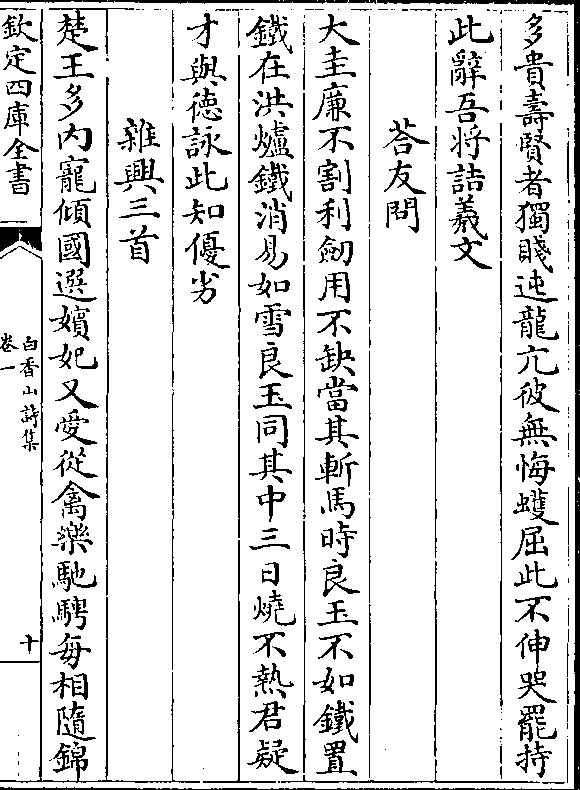 多貴壽賢者獨賤迍龍亢彼無悔蠖屈此不伸哭罷持
此辭吾將詰羲文
荅友問
大圭廉不割利劒用不缺當其斬馬時良玉不如鐵置
鐵在洪爐鐵消易如雪良玉同其中三日燒不熱君疑
才與德詠此知優劣
雜興三首
楚王多内寵傾國選嬪妃又愛從禽樂馳騁每相隨錦
欽定四庫全書
白香山詩集
卷一
十